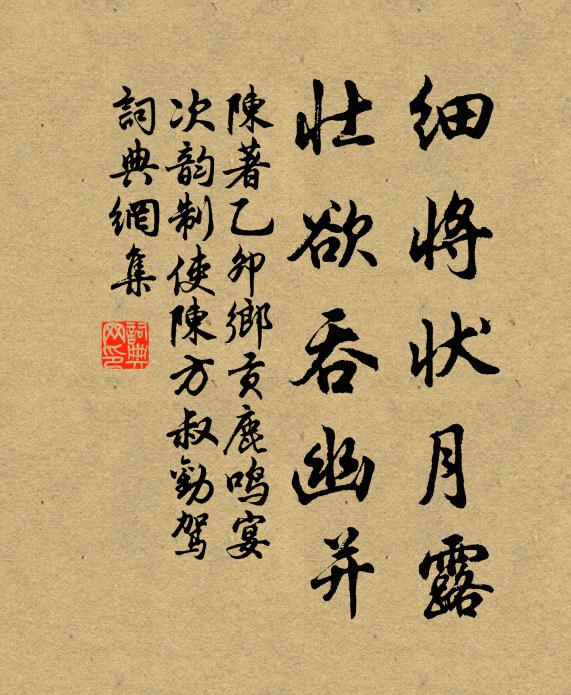 细将状月露
壮欲吞幽并
陳著乙卯鄉贡鹿鸣宴
次韵制使陳方叔勸驾
詞典網集
詞典
网印